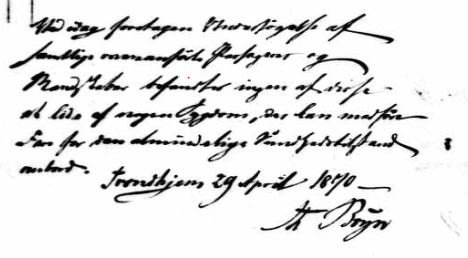 Ved idag foretagen Undersøgelse af
samtlige ommanførte Passagerer og
Mandskaber befandtes ingen af disse
at lide af nogen Sygdom, der kan medføre
Fare for den almindelige Sundhedstilstand
ombord.
Trondhjem 29 April 1870